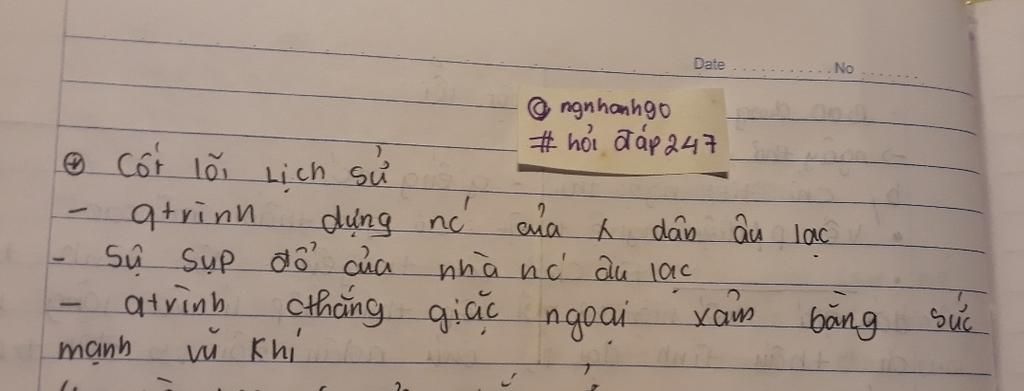 Date ........... No .......
@ ngnhanh90
# hỏi đáp 247
⊕ Cốt lõi Lịch sử
- qtrình dựng nc' của x dân âu lạc
- Sự Sụp đổ của nhà nc' âu lạc
- qtrình cthắng giặc ngoại xâm bằng sức
mạnh vũ khí